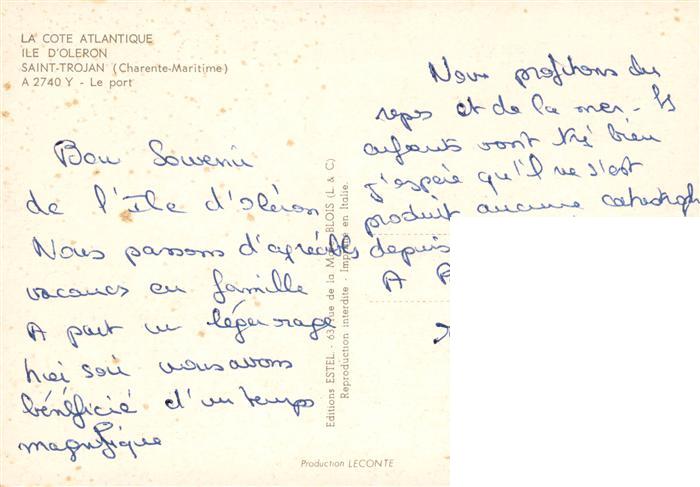 LA COTE ATLANTIQUE
ILE D'OLERON
SAINT-TROJAN (Charente-Maritime)
A 2740 Y - Le port
Bon Souvenir
de l'Ile d'oléron
Nous passons d'agréables
vacances en famille
A part un léger orage
hier soir nous avons
bénéficié d'un temps
magnifique
Nous profitons du
repos et de la mer - Les
enfants vont très bien
J'espère qu'il ne s'est
produit aucune catastroph
depuis
A
Editions ESTEL - 63, rue de la BLOIS (L. & C.)
Reproduction interdite - Imprimé en Italie.
Production LECONTE